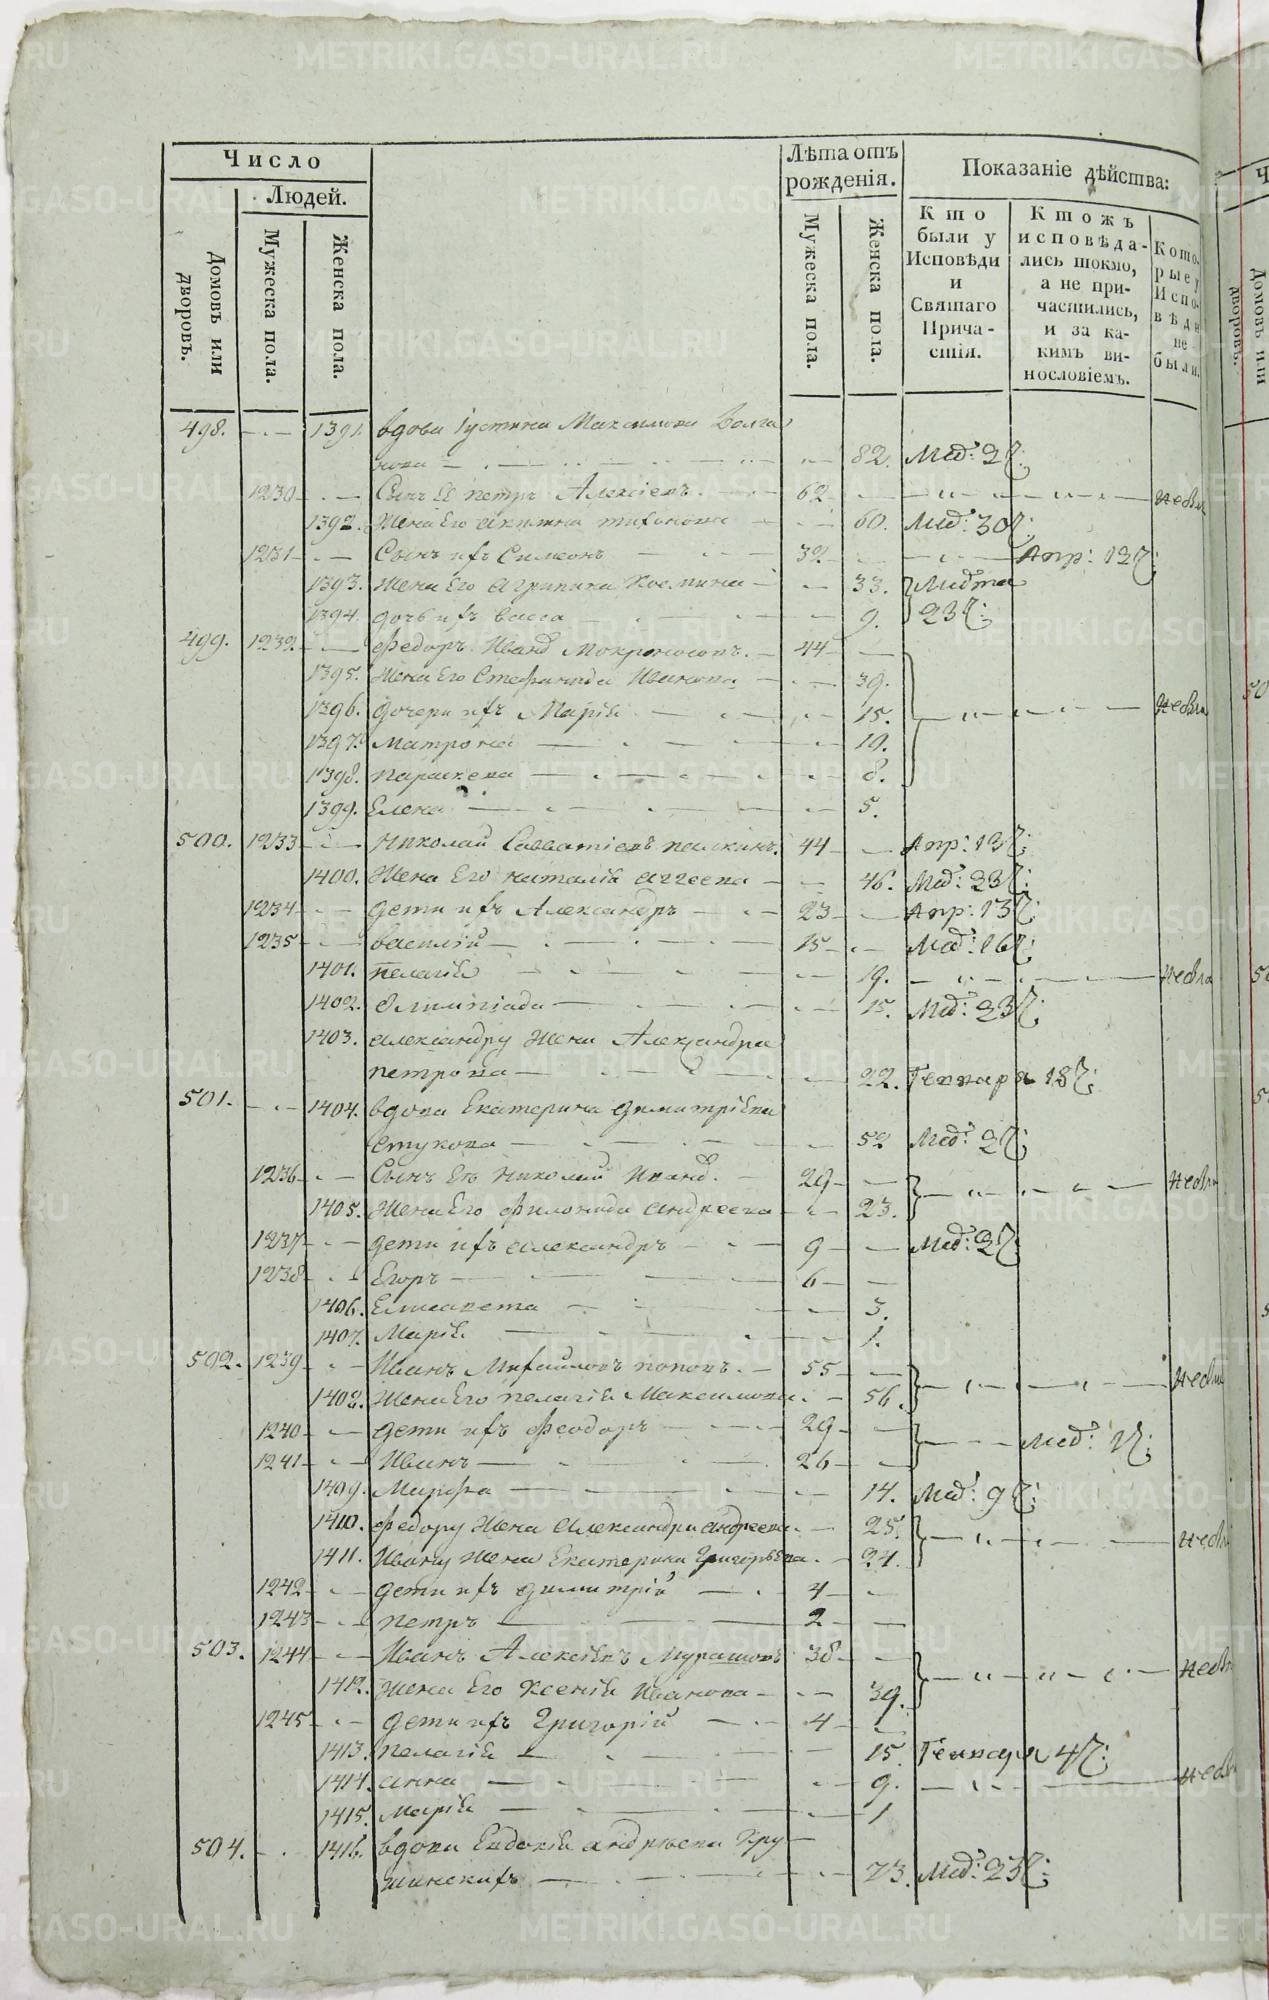 Число
Людей.
Домовъ или дворовъ.
Мужеска пола.
Женска пола.
Лѣта отъ рожденія.
Мужеска пола.
Женска пола.
Показаніе дѣйства:
Кто были у Исповѣди и Святаго Причастія.
Ктожъ исповѣдались токмо, а не причастились, и за какимъ винословіемъ.
Которые у Исповѣди не были.
498. 1391. вдова Іустина Максимова
82. Мар:
1230 Сынъ Ея петръ Алексіевъ 62
1392. Жена Его 60. Мар: 30
1231 Сынъ ихъ Симеонъ 32 Апр: 13
1393. Жена Его Агрипина Космина 33. Марта
1394. дочь ихъ Васса 9. 23
499. 1232 Федоръ Иванов Мокроносовъ. 44
1395. Жена Его Стефанида Иванова 39.
1396. Дочери ихъ Марія 15.
1397. Матрона
1398. параскева 8.
1399. Елена 5.
500. 1233 Николай Савватіевъ 44 Апр: 13
1400. Жена Его наталія Аггеева 46. Мар: 23
1234 дети ихъ Александръ 23 Апр: 13
1235 василій 15 Мар: 16
1401. пелагія 19.
1402. Олимпіада 15. Мар: 23
1403. Александру Жена Александра
петрова 22. Генваря 18
501. 1404. вдова Екатерина Димитріева
стукова 52 Мар:
1236 Сынъ Ея Николай Иванов. 29
1405. Жена Его Филонида Андреева 23.
1237 дети ихъ Александръ 9 Мар:
1238 Егоръ 6
1406. Елисавета 3.
1407. Марія 1.
502. 1239 Иванъ Михайловъ поповъ. 55
1408. Жена Его пелагія Максимова. 56.
1240 дети ихъ Феодоръ 29 Мар:
1241 Иванъ 26
1409. Марфа 14. Мар: 9
1410. Федору Жена Александра Андреева. 25.
1411. Ивану Жена Екатерина Григорьева. 24.
1242 дети ихъ Димитрій 4
1243 петръ 2
503. 1244 Иванъ Алексіевъ Мурашовъ 38
1412. Жена Его Ксенія Иванова 39.
1245 дети ихъ Григорій 4
1413. пелагія 15. Генваря 4
1414. анна 9.
1415. Марія 1
504. 1416. вдова Евдокія Андреева
73. Мар: 23